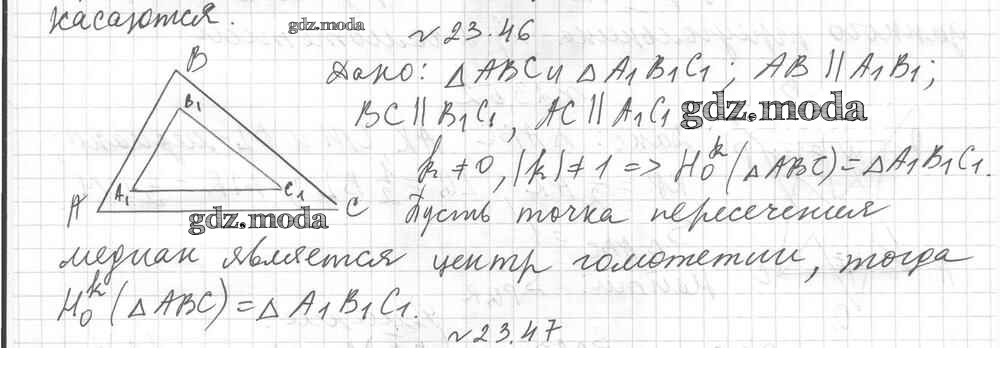 касаются.
gdz.moda
№ 23.46
Дано: △ABC и △A₁B₁C₁; AB ∥ A₁B₁;
BC ∥ B₁C₁, AC ∥ A₁C₁
gdz.moda
k ≠ 0, |k| ≠ 1 => H₀ᵏ(△ABC) = △A₁B₁C₁.
B
B₁
A₁
C₁
A
C
gdz.moda
Пусть точка пересечения
медиан является центр гомотетии, тогда
H₀ᵏ(△ABC) = △A₁B₁C₁.
№ 23.47